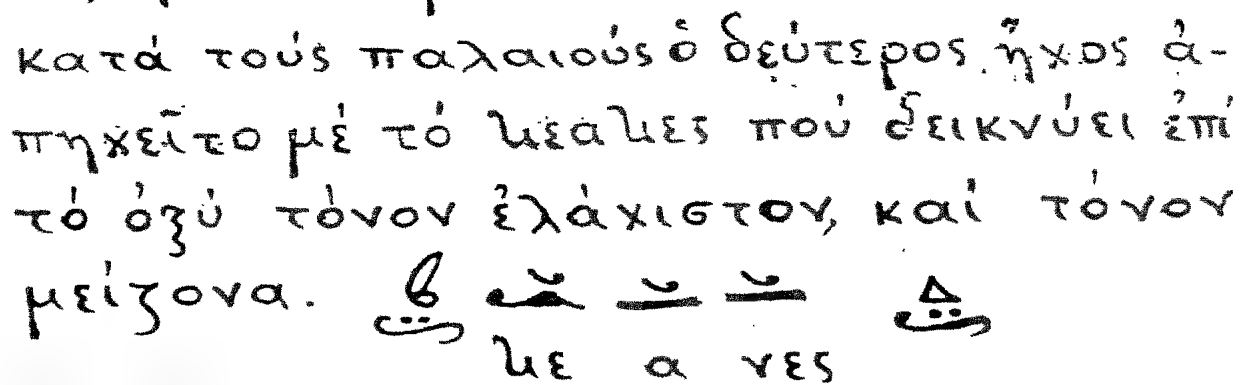 κατά τούς παλαιούς ὁ δεύτερος ἦχος ἀ-
πηχεῖτο μέ τό νεανες πού δεικνύει ἐπί
τό ὀξύ τόνον ἐλάχιστον, καί τόνον
μείζονα.
νε α νες